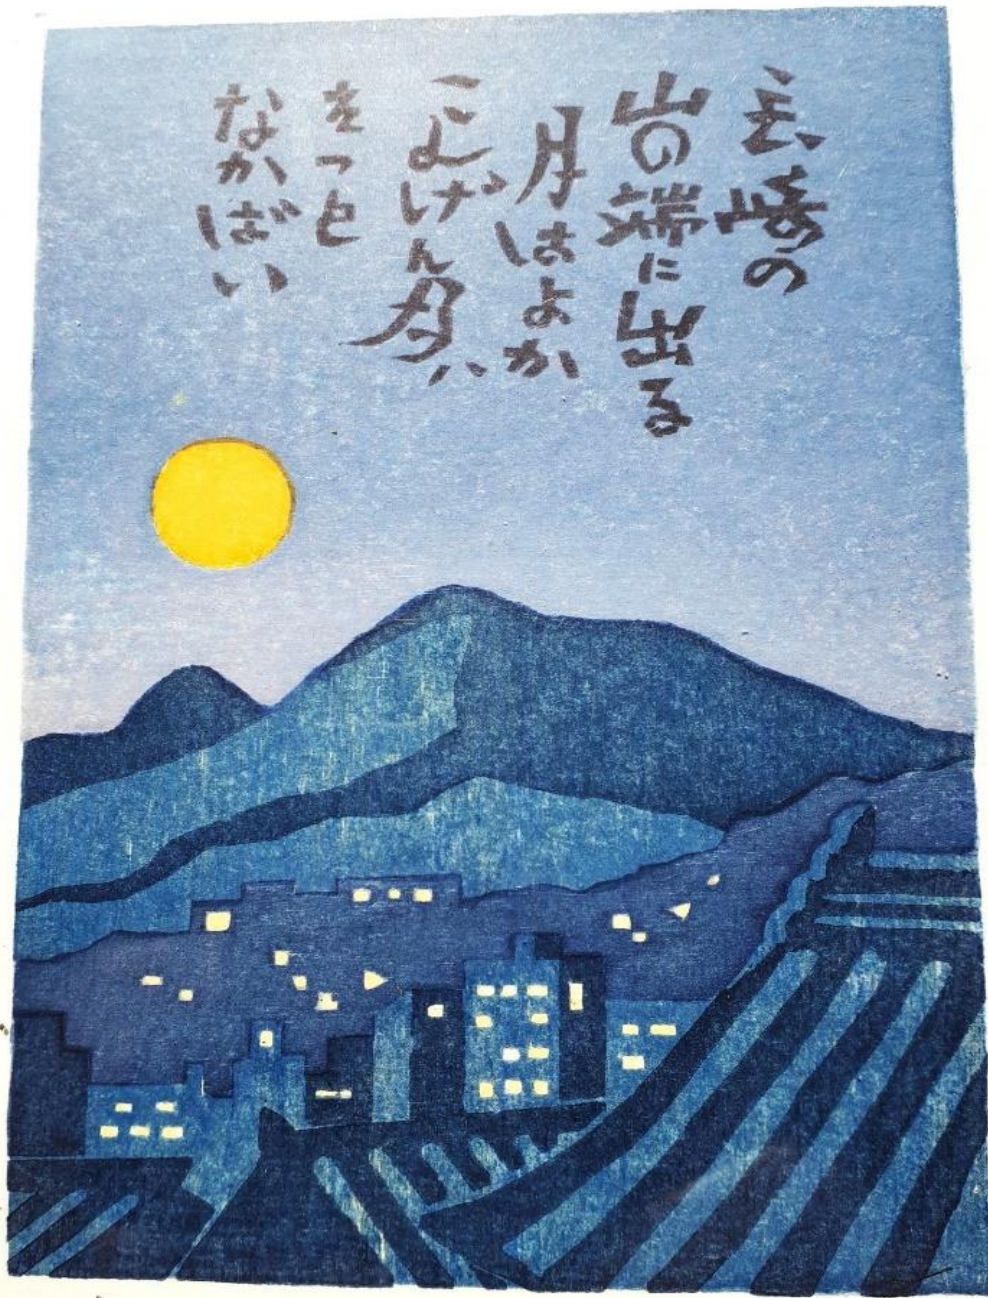 長崎の
山の端に出る
月はよか
こんげん月ハ
えっと
なかばい